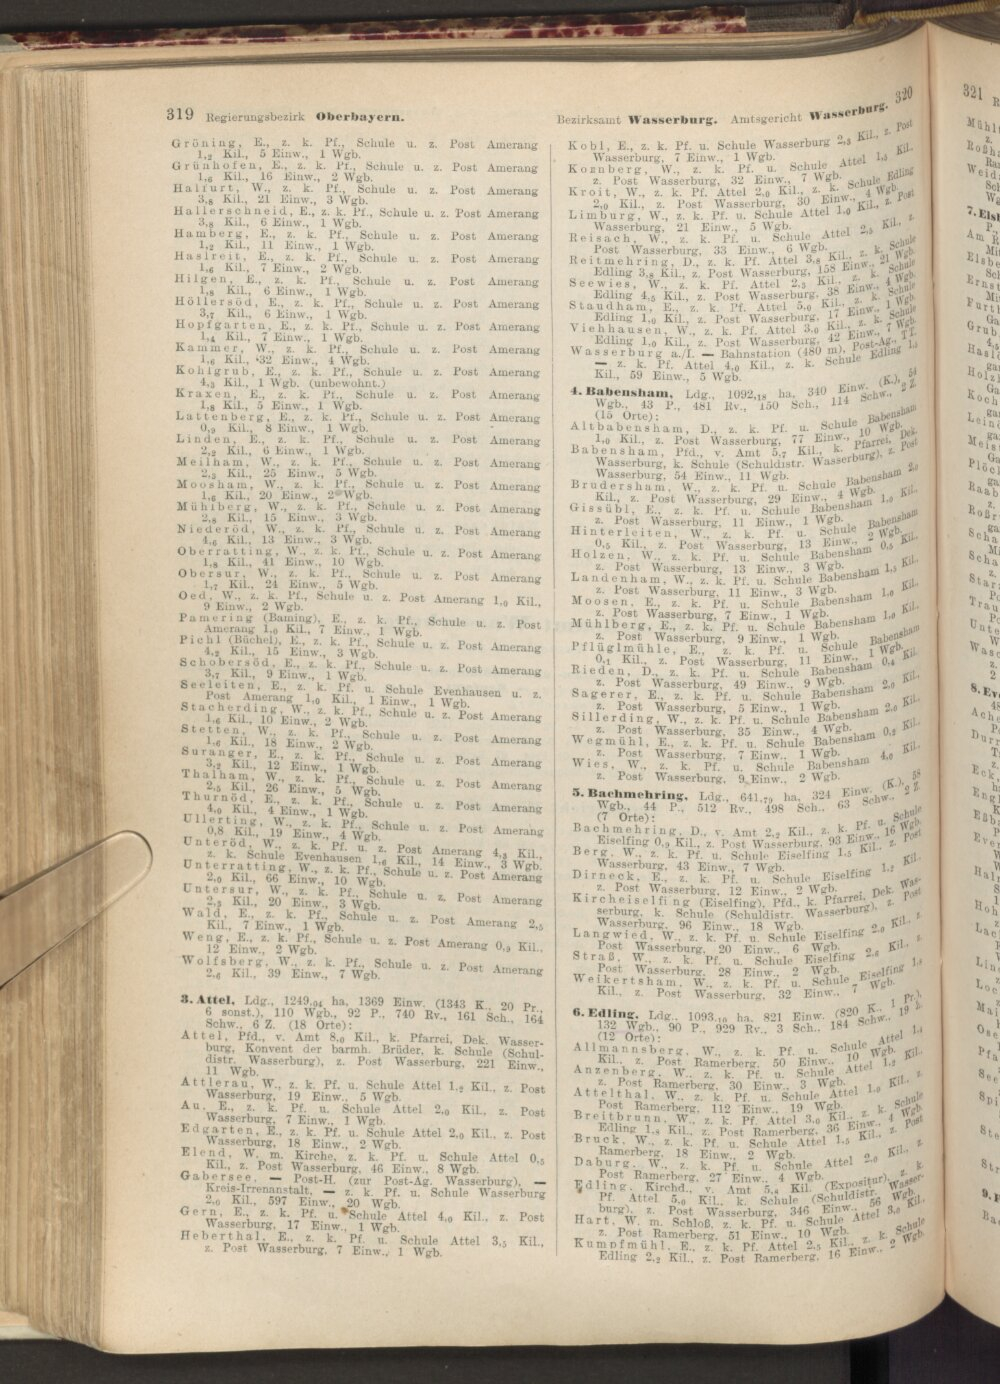 319 Regierungsbezirk Oberbayern.
Gröning, E., z. k. Pf., Schule u. z. Post Amerang
1,2 Kil., 5 Einw., 1 Wgb.
Grünhofen, E., z. k. Pf., Schule u. z. Post Amerang
1,6 Kil., 16 Einw., 2 Wgb.
Halfurt, W., z. k. Pf., Schule u. z. Post Amerang
3,8 Kil., 21 Einw., 3 Wgb.
Hallerschneid, E., z. k. Pf., Schule u. z. Post Amerang
3,8 Kil., 6 Einw., 1 Wgb.
Hamberg, E., z. k. Pf., Schule u. z. Post Amerang
1,2 Kil., 11 Einw., 1 Wgb.
Haslreit, E., z. k. Pf., Schule u. z. Post Amerang
1,6 Kil., 7 Einw., 2 Wgb.
Hilgen, E., z. k. Pf., Schule u. z. Post Amerang
1,8 Kil., 6 Einw., 1 Wgb.
Höllersöd, E., z. k. Pf., Schule u. z. Post Amerang
3,7 Kil., 6 Einw., 1 Wgb.
Hopfgarten, E., z. k. Pf., Schule u. z. Post Amerang
1,4 Kil., 7 Einw., 1 Wgb.
Kammer, W., z. k. Pf., Schule u. z. Post Amerang
1,6 Kil., 32 Einw., 4 Wgb.
Kohlgrub, E., z. k. Pf., Schule u. z. Post Amerang
4,3 Kil., 1 Wgb. (unbewohnt.)
Kraxen, E., z. k. Pf., Schule u. z. Post Amerang
1,8 Kil., 5 Einw., 1 Wgb.
Lattenberg, E., z. k. Pf., Schule u. z. Post Amerang
0,9 Kil., 8 Einw., 1 Wgb.
Linden, E., z. k. Pf., Schule u. z. Post Amerang
2,2 Kil., 6 Einw., 1 Wgb.
Meilham, W., z. k. Pf., Schule u. z. Post Amerang
2,5 Kil., 25 Einw., 5 Wgb.
Moosham, W., z. k. Pf., Schule u. z. Post Amerang
1,6 Kil., 20 Einw., 2 Wgb.
Mühlberg, W., z. k. Pf., Schule u. z. Post Amerang
2,8 Kil., 15 Einw., 3 Wgb.
Niederöd, W., z. k. Pf., Schule u. z. Post Amerang
4,6 Kil., 13 Einw., 3 Wgb.
Oberratting, W., z. k. Pf., Schule u. z. Post Amerang
1,8 Kil., 41 Einw., 10 Wgb.
Obersur, W., z. k. Pf., Schule u. z. Post Amerang
1,7 Kil., 24 Einw., 5 Wgb.
Oed, W., z. k. Pf., Schule u. z. Post Amerang 1,0 Kil.,
9 Einw., 2 Wgb.
Pamering (Baming), E., z. k. Pf., Schule u. z. Post
Amerang 1,0 Kil., 7 Einw., 1 Wgb.
Pichl (Büchel), E., z. k. Pf., Schule u. z. Post Amerang
4,2 Kil., 15 Einw., 3 Wgb.
Schobersöd, E., z. k. Pf., Schule u. z. Post Amerang
3,7 Kil., 9 Einw., 1 Wgb.
Seeleiten, E., z. k. Pf. u. Schule Evenhausen u. z.
Post Amerang 1,0 Kil., 1 Einw., 1 Wgb.
Stacherding, W., z. k. Pf., Schule u. z. Post Amerang
1,6 Kil., 10 Einw., 2 Wgb.
Stetten, W., z. k. Pf., Schule u. z. Post Amerang
1,6 Kil., 18 Einw., 2 Wgb.
Suranger, E., z. k. Pf., Schule u. z. Post Amerang
3,2 Kil., 12 Einw., 1 Wgb.
Thalham, W., z. k. Pf., Schule u. z. Post Amerang
2,5 Kil., 26 Einw., 5 Wgb.
Thurnöd, E., z. k. Pf., Schule u. z. Post Amerang
4,0 Kil., 4 Einw., 1 Wgb.
Ullerting, W., z. k. Pf., Schule u. z. Post Amerang
0,8 Kil., 19 Einw., 4 Wgb.
Unteröd, W., z. k. Pf. u. z. Post Amerang 4,3 Kil.,
z. k. Schule Evenhausen 1,6 Kil., 14 Einw., 3 Wgb.
Unterratting, W., z. k. Pf., Schule u. z. Post Amerang
2,0 Kil., 66 Einw., 10 Wgb.
Untersur, W., z. k. Pf., Schule u. z. Post Amerang
2,3 Kil., 20 Einw., 3 Wgb.
Wald, E., z. k. Pf., Schule u. z. Post Amerang 2,5
Kil., 7 Einw., 1 Wgb.
Weng, E., z. k. Pf., Schule u. z. Post Amerang 0,9 Kil.,
12 Einw., 2 Wgb.
Wolfsberg, W., z. k. Pf., Schule u. z. Post Amerang
2,6 Kil., 39 Einw., 7 Wgb.
3. Attel, Ldg., 1249,04 ha, 1369 Einw. (1343 K., 20 Pr.,
6 sonst.), 110 Wgb., 92 P., 740 Rv., 161 Sch., 164
Schw., 6 Z. (18 Orte):
Attel, Pfd., v. Amt 8,0 Kil., k. Pfarrei, Dek. Wasser-
burg, Konvent der barmh. Brüder, k. Schule (Schul-
distr. Wasserburg), z. Post Wasserburg, 221 Einw.,
11 Wgb.
Attlerau, W., z. k. Pf. u. Schule Attel 1,2 Kil., z. Post
Wasserburg, 19 Einw., 5 Wgb.
Au, E., z. k. Pf. u. Schule Attel 2,0 Kil., z. Post
Wasserburg, 7 Einw., 1 Wgb.
Edgarten, E., z. k. Pf. u. Schule Attel 2,0 Kil., z. Post
Wasserburg, 18 Einw., 2 Wgb.
Elend, W. m. Kirche, z. k. Pf. u. Schule Attel 0,5
Kil., z. Post Wasserburg, 46 Einw., 8 Wgb.
Gabersee, — Post-H. (zur Post-Ag. Wasserburg), —
Kreis-Irrenanstalt, — z. k. Pf. u. Schule Wasserburg
2,0 Kil., 597 Einw., 20 Wgb.
Gern, E., z. k. Pf. u. Schule Attel 4,0 Kil., z. Post
Wasserburg, 17 Einw., 1 Wgb.
Heberthal, E., z. k. Pf. u. Schule Attel 3,5 Kil.,
z. Post Wasserburg, 7 Einw., 1 Wgb.
Bezirksamt Wasserburg. Amtsgericht Wasserburg. 320
Kobl, E., z. k. Pf. u. Schule Wasserburg 2,3 Kil., z. Post
Wasserburg, 7 Einw., 1 Wgb.
Kornberg, W., z. k. Pf. u. Schule Attel 1,5 Kil.,
z. Post Wasserburg, 32 Einw., 7 Wgb.
Kroit, W., z. k. Pf. Attel 2,0 Kil., z. k. Schule Edling
2,0 Kil., z. Post Wasserburg, 30 Einw., 4 Wgb.
Limburg, W., z. k. Pf. u. Schule Attel 1,0 Kil., z. Post
Wasserburg, 21 Einw., 5 Wgb.
Reisach, W., z. k. Pf. u. Schule Attel 2,5 Kil., z.
Post Wasserburg, 33 Einw., 6 Wgb.
Reitmehring, D., z. k. Pf. Attel 3,8 Kil., z. k. Schule
Edling 3,8 Kil., z. Post Wasserburg, 158 Einw., 21 Wgb.
Seewies, W., z. k. Pf. Attel 2,5 Kil., z. k. Schule
Edling 4,5 Kil., z. Post Wasserburg, 38 Einw., 4 Wgb.
Staudham, E., z. k. Pf. Attel 5,0 Kil., z. k. Schule
Edling 1,0 Kil., z. Post Wasserburg, 17 Einw., 1 Wgb.
Viehhausen, W., z. k. Pf. Attel 3,0 Kil., z. k. Schule
Edling 1,0 Kil., z. Post Wasserburg, 42 Einw., 7 Wgb.
Wasserburg a./I. — Bahnstation (480 m), Post-Ag., TT.
— z. k. Pf. Attel 4,0 Kil., z. k. Schule Edling 1,3
Kil., 59 Einw., 5 Wgb.
4. Babensham, Ldg., 1092,18 ha, 340 Einw. (K.), 54
Wgb., 43 P., 481 Rv., 150 Sch., 114 Schw., 2 Z.
(15 Orte):
Altbabensham, D., z. k. Pf. u. Schule Babensham
1,0 Kil., z. Post Wasserburg, 77 Einw., 10 Wgb.
Babensham, Pfd., v. Amt 5,7 Kil., k. Pfarrei, Dek.
Wasserburg, k. Schule (Schuldistr. Wasserburg), z. Post
Wasserburg, 54 Einw., 11 Wgb.
Brudersham, W., z. k. Pf. u. Schule Babensham 2,0
Kil., z. Post Wasserburg, 29 Einw., 4 Wgb.
Gissübl, E., z. k. Pf. u. Schule Babensham 1,0 Kil.,
z. Post Wasserburg, 11 Einw., 1 Wgb.
Hinterleiten, W., z. k. Pf. u. Schule Babensham
0,5 Kil., z. Post Wasserburg, 13 Einw., 2 Wgb.
Holzen, W., z. k. Pf. u. Schule Babensham 0,5 Kil.,
z. Post Wasserburg, 13 Einw., 3 Wgb.
Landenham, W., z. k. Pf. u. Schule Babensham 1,5 Kil.,
z. Post Wasserburg, 11 Einw., 3 Wgb.
Moosen, E., z. k. Pf. u. Schule Babensham 1,0 Kil.,
z. Post Wasserburg, 7 Einw., 1 Wgb.
Mühlberg, E., z. k. Pf. u. Schule Babensham 1,0 Kil.,
z. Post Wasserburg, 9 Einw., 1 Wgb.
Pflüglmühle, E., z. k. Pf. u. Schule Babensham
0,1 Kil., z. Post Wasserburg, 11 Einw., 1 Wgb.
Rieden, D., z. k. Pf. u. Schule Babensham 0,4 Kil.
z. Post Wasserburg, 49 Einw., 9 Wgb.
Sagerer, E., z. k. Pf. u. Schule Babensham 2,0 Kil.,
z. Post Wasserburg, 5 Einw., 1 Wgb.
Sillerding, W., z. k. Pf. u. Schule Babensham 2,0 Kil.,
z. Post Wasserburg, 35 Einw., 4 Wgb.
Wegmühl, E., z. k. Pf. u. Schule Babensham 0,2 Kil.,
z. Post Wasserburg, 7 Einw., 1 Wgb.
Wies, W., z. k. Pf. u. Schule Babensham 4,0 Kil.
z. Post Wasserburg, 9 Einw., 2 Wgb.
5. Bachmehring, Ldg., 641,79 ha, 324 Einw. (K.), 58
Wgb., 44 P., 512 Rv., 498 Sch., 63 Schw., 2 Z.
(7 Orte):
Bachmehring, D., v. Amt 2,2 Kil., z. k. Pf. u. Schule
Eiselfing 0,9 Kil., z. Post Wasserburg, 93 Einw., 16 Wgb.
Berg, W., z. k. Pf. u. Schule Eiselfing 1,5 Kil., z. Post
Wasserburg, 43 Einw., 7 Wgb.
Dirneck, E., z. k. Pf. u. Schule Eiselfing 1,2 Kil.
z. Post Wasserburg, 12 Einw., 2 Wgb.
Kircheiselfing (Eiselfing), Pfd., k. Pfarrei, Dek. Was-
serburg, k. Schule (Schuldistr. Wasserburg), z. Post
Wasserburg, 96 Einw., 18 Wgb.
Langwied, W., z. k. Pf. u. Schule Eiselfing 2,0 Kil., z.
Post Wasserburg, 20 Einw., 6 Wgb.
Straß, W., z. k. Pf. u. Schule Eiselfing 2,6 Kil., z.
Post Wasserburg, 28 Einw., 2 Wgb.
Weikertsham, W., z. k. Pf. u. Schule Eiselfing 1,8
Kil., z. Post Wasserburg, 32 Einw., 7 Wgb.
6. Edling, Ldg., 1093,10 ha, 821 Einw. (820 K., 1 Pr.),
132 Wgb., 90 P., 929 Rv., 3 Sch., 184 Schw., 19 Z.
(12 Orte):
Allmannsberg, W., z. k. Pf. u. Schule Attel 1,1
Kil., z. Post Ramerberg, 50 Einw., 10 Wgb.
Anzenberg, W., z. k. Pf. u. Schule Attel 1,2 Kil.
z. Post Ramerberg, 30 Einw., 3 Wgb.
Attelthal, W., z. k. Pf. u. Schule Attel 1,0 Kil., z.
Post Ramerberg, 112 Einw., 19 Wgb.
Breitbrunn, W., z. k. Pf. Attel 3,0 Kil., z. k. Schule
Edling 1,8 Kil., z. Post Ramerberg, 36 Einw., 4 Wgb.
Bruck, W., z. k. Pf. u. Schule Attel 1,5 Kil., z. Post
Ramerberg, 18 Einw., 2 Wgb.
Daburg, W., z. k. Pf. u. Schule Attel 2,0 Kil., z.
Post Ramerberg, 27 Einw., 4 Wgb.
Edling, Kirchd., v. Amt 5,4 Kil. (Expositur), z. k.
Pf. Attel 5,0 Kil., k. Schule (Schuldistr. Wasser-
burg), z. Post Wasserburg, 346 Einw., 56 Wgb.
Hart, W. m. Schloß, z. k. Pf. u. Schule Attel 3,0 Kil.,
z. Post Ramerberg, 51 Einw., 10 Wgb.
Kumpfmühl, E., z. k. Pf. Attel 2,5 Kil., z. k. Schule
Edling 2,2 Kil., z. Post Ramerberg, 16 Einw., 2 Wgb.
321